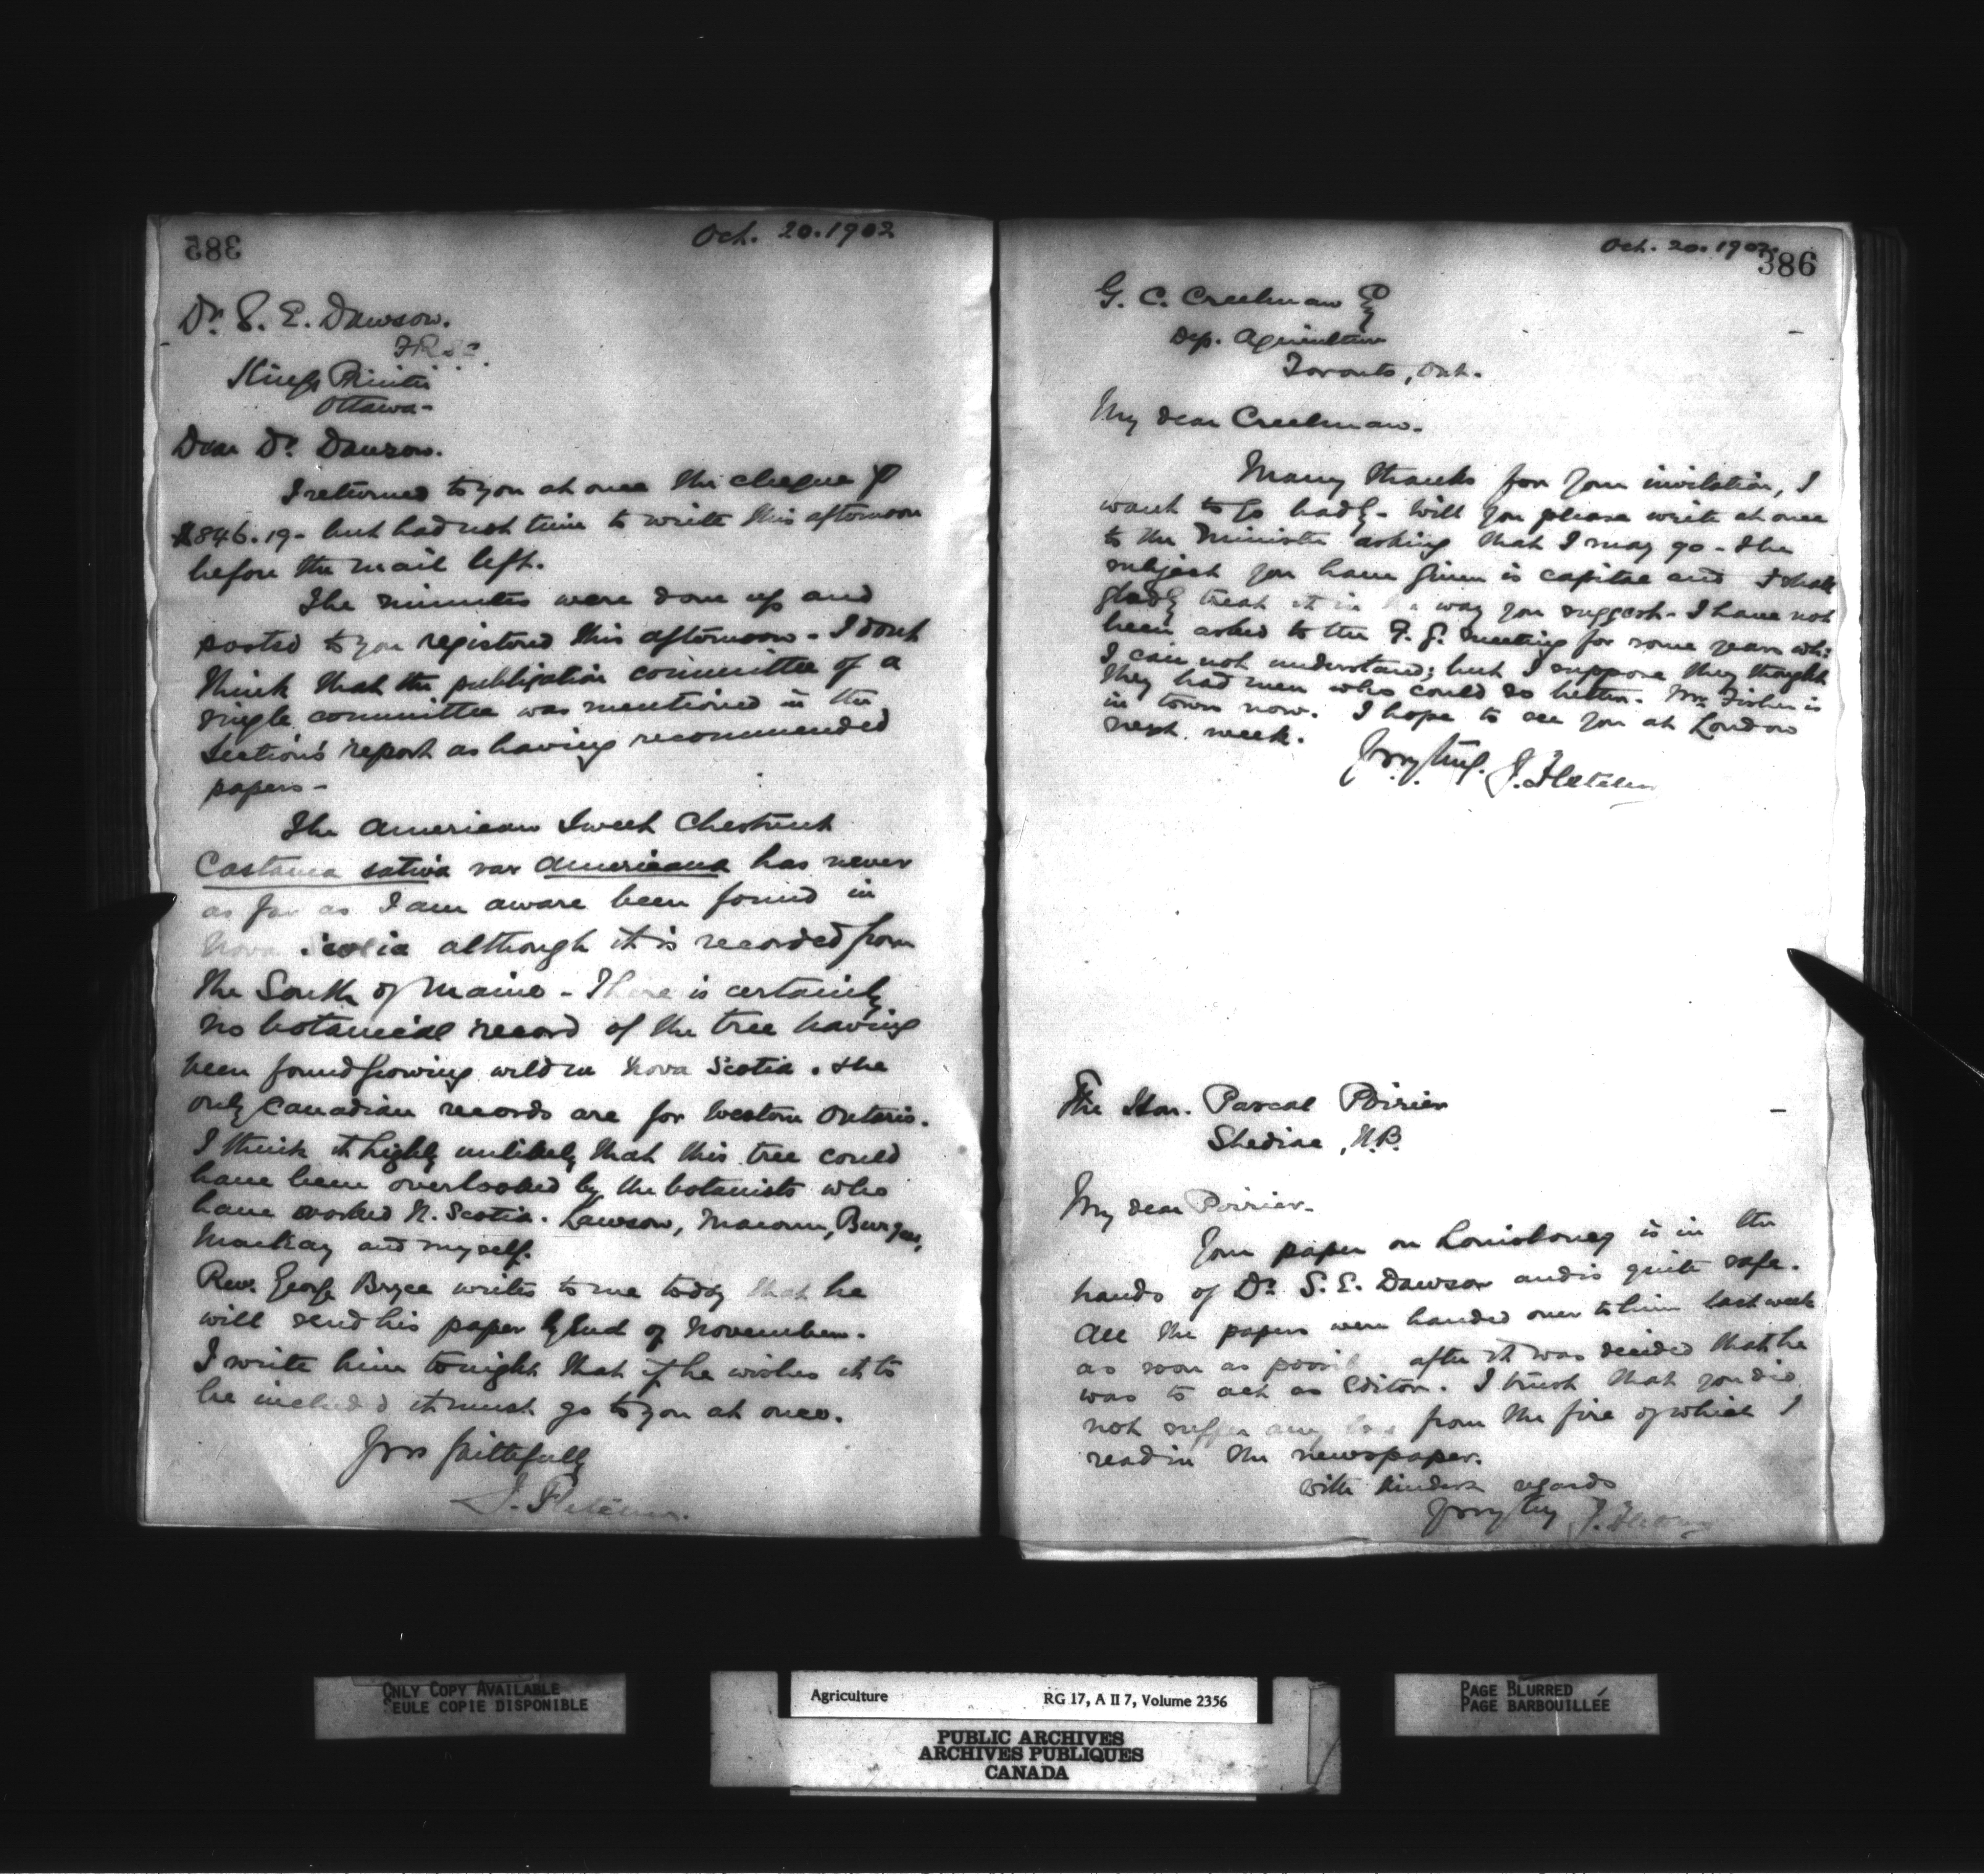 385
Oct. 20. 1902
Dr. S. E. Dawson.
F.R.S.C.
King's Printer
Ottawa-
Dear Dr. Dawson.
I returned to you at once the cheque for
$846.19- but had not time to write this afternoon
before the mail left.
The minutes were done up and
posted to you registered this afternoon - I don't
think that the publication committee of a
single committee was mentioned in the
Section's report as having recommended
papers -
The American Sweet Chestnut
Castanea sativa var Americana has never
as far as I am aware been found in
Nova Scotia although it is recorded from
the South of Maine - There is certainly
no botanical record of the tree having
been found growing wild in Nova Scotia. The
only Canadian records are for Western Ontario.
I think it highly unlikely that this tree could
have been overlooked by the botanists who
have worked N. Scotia. Lawson, Macoun, Burgess,
Mackay and myself.
Rev. George Bryce writes to me today that he
will send his paper by End of November.
I write him tonight that if he wishes it to
be included it must go to you at once.
Yrs faithfully
J. Fletcher.
Oct. 20. 1902.
386
G. C. Creelman Esq
Dep. Agriculture
Toronto, Ont.
My dear Creelman.
Many thanks for your invitation, I
want to go badly - Will you please write at once
to the Minister asking that I may go - The
subject you have given is capital and I shall
gladly treat it in way you suggest - I have not
been asked to the F. G. meeting for some years why
I can not understand; but I suppose they thought
they had men who could do better. Mr. Fisher is
in town now. I hope to see you at London
next week.
Yrs very truly. J. Fletcher
The Hon. Pascal Poirier
Shediac, N.B.
My dear Poirier.
Your paper on Louisbourg is in the
hands of Dr. S. E. Dawson and is quite safe.
All the papers were handed over to him last week
as soon as possible after it was decided that he
was to act as Editor. I trust that you did
not suffer any loss from the fire of which I
read in the newspaper.
With kindest regards
Yrs very truly J. Fletcher
ONLY COPY AVAILABLE
SEULE COPIE DISPONIBLE
Agriculture RG 17, A II 7, Volume 2356
PUBLIC ARCHIVES
ARCHIVES PUBLIQUES
CANADA
PAGE BLURRED
PAGE BARBOUILLÉE